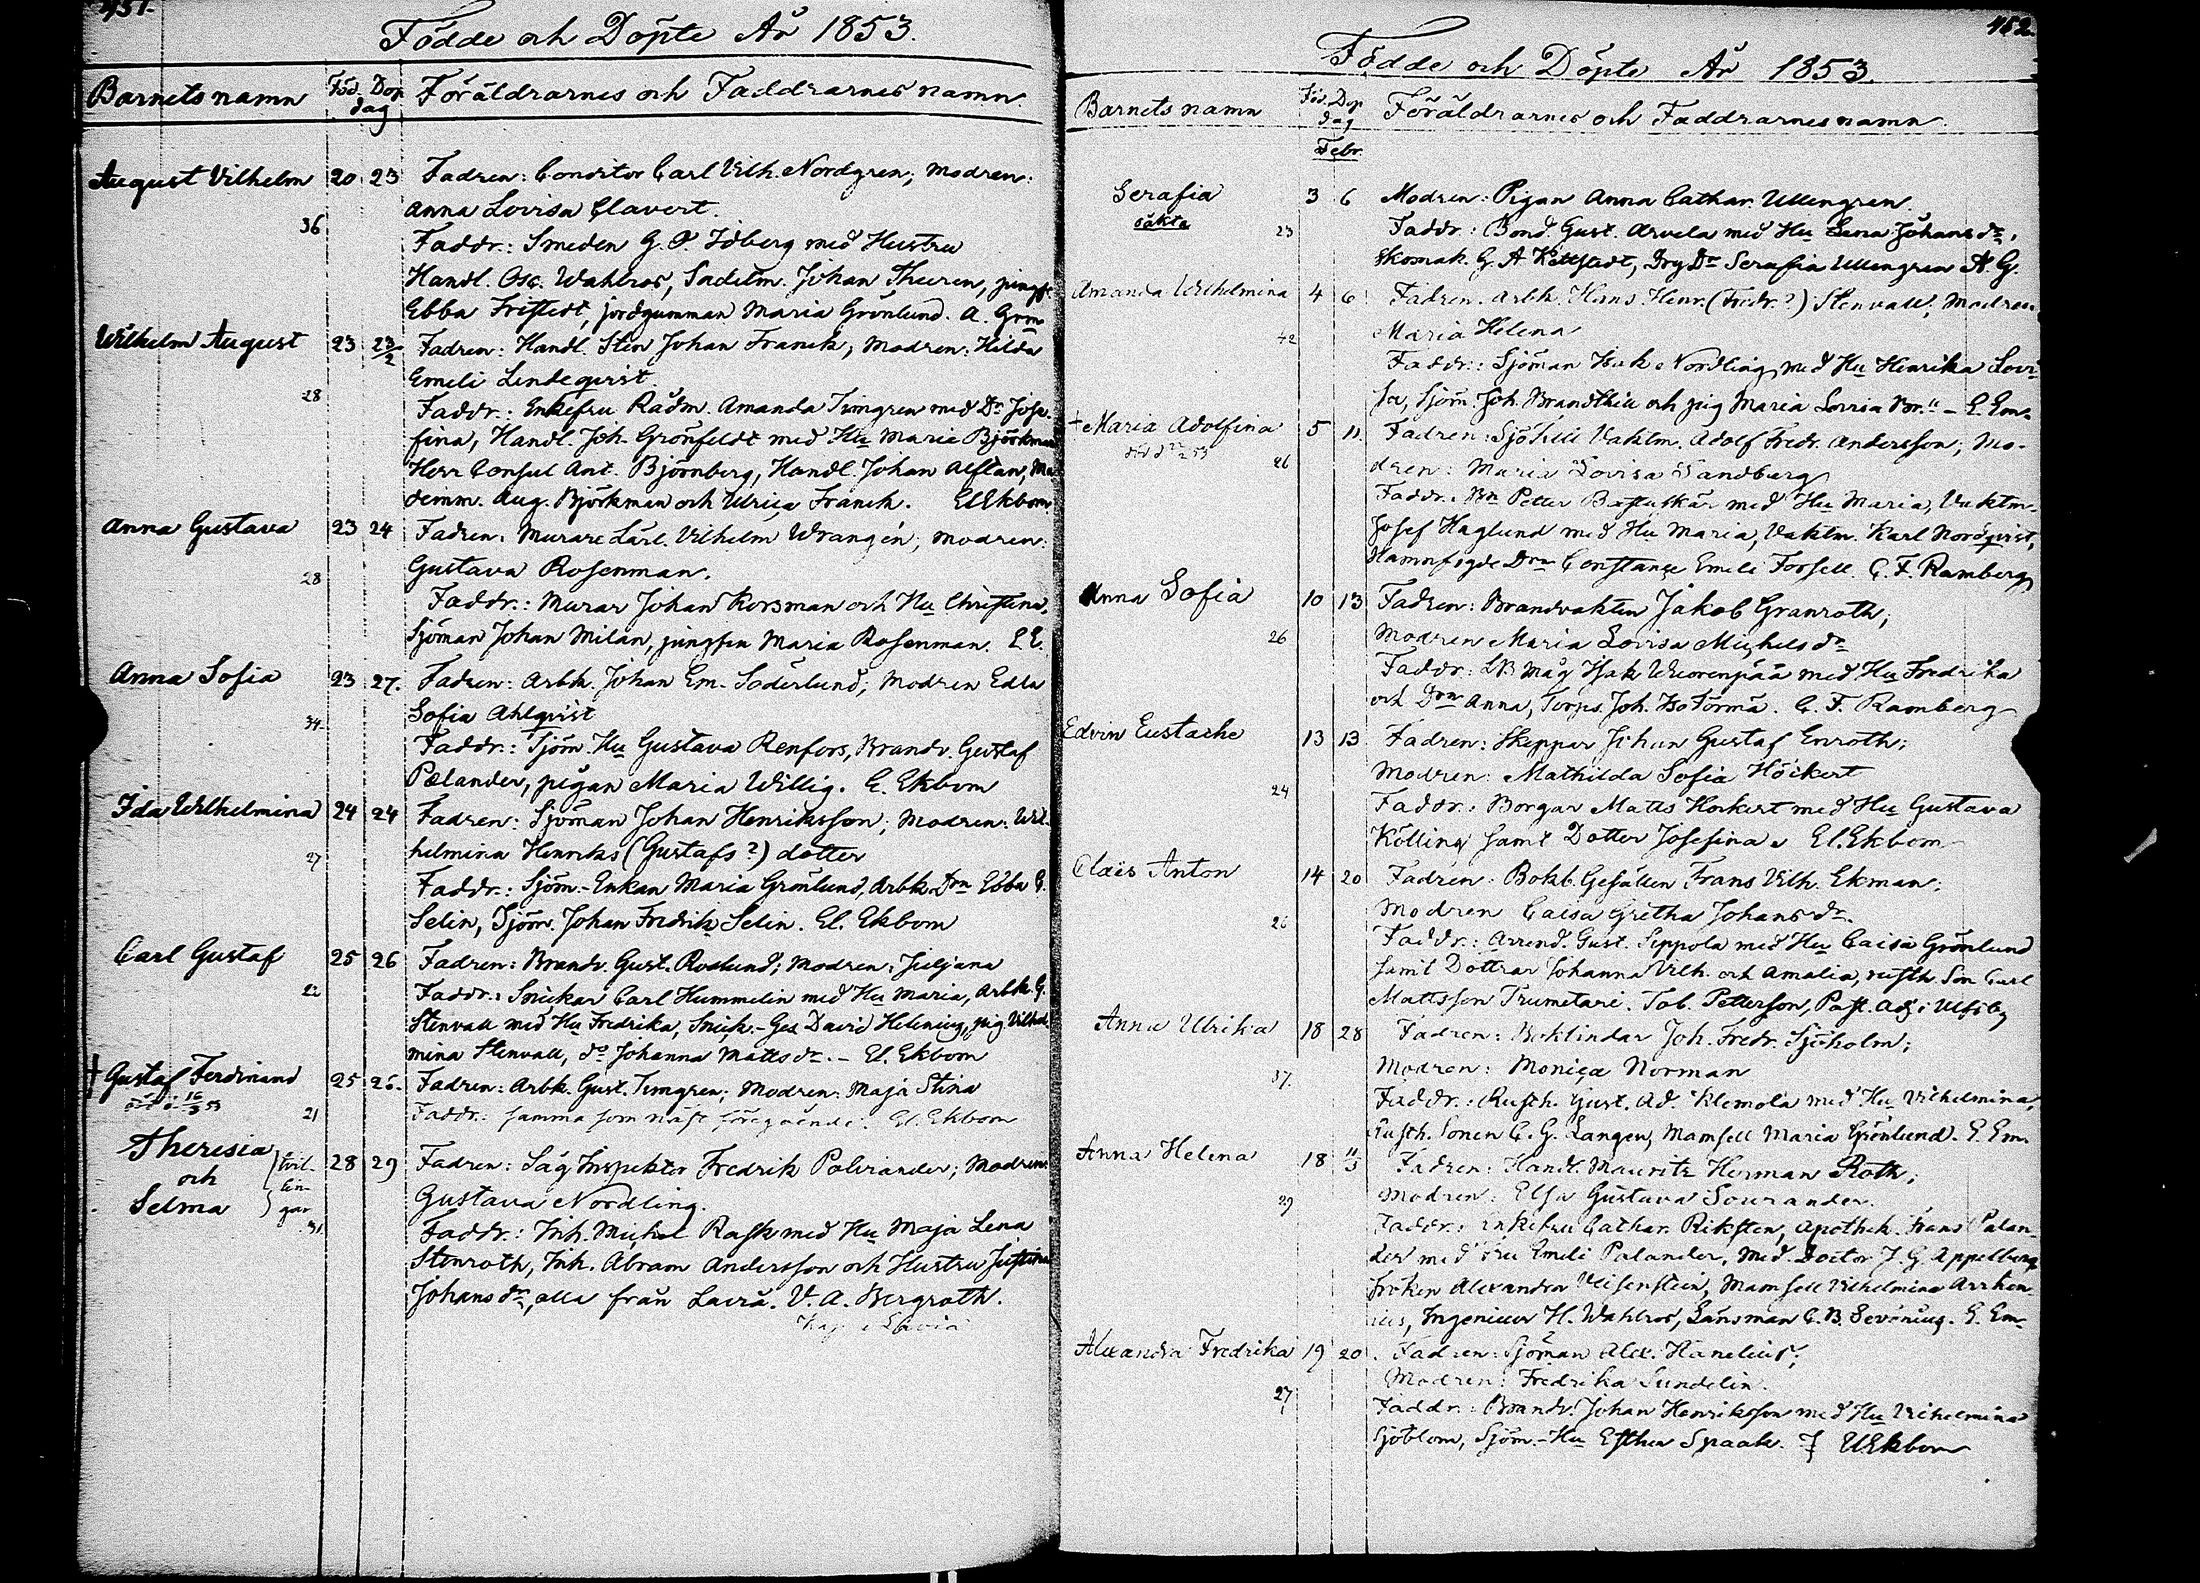 451.
Födde och Döpte År 1853.
Barnets namn Föd. Dop dag Föräldrarnes och Faddrarnes namn.
August Vilhelm 20 23 Fadren: Conditor Carl Vilh. Nordgren; Modren:
Anna Lovisa Clavert.
36
Faddr.: Smeden G. F. Idberg med Hustru
Handl. Osc. Wahlroos, Sadelm. Johan Thuren, jungfr.
Ebba Fristedt, jordgumman Maria Grönlund. A. Grön
Wilhelm August 23 23/2 Fadren: Handl. Sten Johan Franck; Modren: Hilda
Emeli Lindeqvist.
28
Faddr.: Enkefru Rådm. Amanda Timgren med Dr Jose-
fina, Handl. Joh. Grönfeldt med Hu Maria Björkman
Herr Consul Ant. Björnberg, Handl. Johan Alftan, Ma
demm. Aug. Björkman och Ulrica Franck. El Ekbom
Anna Gustava 23 24 Fadren: Murare Lärl. Vilhelm Wrangén; Modren:
Gustava Rosenman.
28
Faddr.: Murar Johan Korsman och Hu Christina,
Sjöman Johan Milan, jungfru Maria Rosenman. E E.
Anna Sofia 23 27. Fadren: Arbk. Johan Em. Söderlund; Modren Edla
Sofia Ahlqvist
34
Faddr.: Sjöm. Hu Gustava Renfors, Brandv. Gustaf
Pælander, pigan Maria Willig. E. Ekbom
Ida Wilhelmina 24 24 Fadren: Sjöman Johan Henriksson; Modren: Wil-
helmina Henriks (Gustafs?) dotter
27
Faddr.: Sjöm.-Enkan Maria Grönlund, Arbk. Drn Ebba G.
Selin, Sjöm. Johan Fredrik Selin. El. Ekbom
Carl Gustaf 25 26 Fadren: Brandv. Gust. Roslund; Modren: Juljana
22
Faddr.: Snickar Carl Hummelin med Hu Maria, Arbk. G.
Stenvall med Hu Fredrika, Snick.-Ges David Helenius, pig. Vilhel-
mina Stenvall, do Johanna Matts dr. – El. Ekbom
† Gustaf Ferdinand 25 26. Fadren: Arbk. Gust. Timgren; Modren: Maja Stina
21
Faddr.: samma som näst föregående. El. Ekbom
Theresia
och
Selma
tvil-
lin-
gar
28 29 Fadren: Såg Inspektor Fredrik Polviander; Modren:
Gustava Nordling.
31
Faddr.: Inh. Michel Rask med Hu Maja Lena
Stenroth, Inh. Abram Andersson och Hustru Justina
Johans dr, alla från Lavia. V. A. Bergroth.
Kap i Lavia
452.
Födde och Döpte År 1853
Barnets namn Föd. Dop dag Föräldrarnes och Faddrarnes namn.
Febr.
Serafia 3 6 Modren: Pigan Anna Cathar. Ullengren.
oäkta
23
Faddr.: Bond. Gust. Arvela med Hu Lena Johans dr,
Skomak. G. A Kellstedt, Drg Dr Serafia Ullengren A. G.
Amanda Wilhelmina 4 6 Fadren: Arbk. Hans Henr. (Fredr.?) Stenvall; Modren:
Maria Helena
42
Faddr.: Sjöman Isak Nordling med Hu Henrika Lovi-
sa, Sjöm. Joh. Brandthill och pig Maria Lovisa – E. Em.
† Maria Adolfina 5 11. Fadren: Sjötull Vaktm. Adolf Fredr. Andersson; Mo-
dren: Maria Lovisa Sandberg
26
Faddr.: Petter med Hu Maria, Vaktm.
Josef Haglund med Hu Maria, Vaktm. Karl Nordqvist,
Hamnfogde Drn Constance Emeli Forsell. C. F. Ramberg
Anna Sofia 10 13 Fadren: Brandvakten Jakob Granroth;
26
Modren Maria Lovisa Michels dr
Faddr.: Måg Isak Wuorenpää med Hu Fredrika
och Drn Anna, Torps. Joh. IsoTörmä. C. F. Ramberg
Edvin Eustache 13 13 Fadren: Skeppar Johan Gustaf Enroth;
Modren: Mathilda Sofia Höckert
24
Faddr.: Borgar Matts Höckert med Hu Gustava
Kölling samt Dotter Josefina. El. Ekbom
Claës Anton 14 20 Fadren: Bokb. Gesällen Frans Vilh. Ekman;
Modren Caisa Gretha Johans dr.
Faddr.: Arrend. Gust. Seppola med Hu Caisa Grönlund
samt Döttrar Johanna Vilh. och Amalia, rusth. Son Carl
Mattsson Trumetari. Tob. Petterson, Past. Adj. i Ulfsby
Anna Ulrika 18 28 Fadren: Bokbindar Joh. Fredr. Sjöholm;
Modren: Monica Norman
37.
Faddr.: Rusth. Gust. Ad. Klemola med Hu Vilhelmina,
Rusth. Sonen C. G. Langen, Mamsell Maria Grönlund. E. Em.
Anna Helena 18 11/3 Fadren: Handl. Mauritz Herman Roth;
Modren: Elsa Gustava Sourander.
29
Faddr.: Enkefru Cathar. Riksten, Apothek. Frans Palan-
der med Fru Emeli Palander, Med. Doctor J. G. Appelberg
Fröken Alexandra Veisenstein, Mamsell Vilhelmina Arrhen-
ius, Ingenieur H. Wahlroos, Länsman C. B. Sevónius. E. Em.
Alexandra Fredrika 19 20. Fadren: Sjöman Alex. Hanelius;
Modren: Fredrika Sundelin.
27
Faddr.: Brandv. Johan Henriksson med Hu Vilhelmina
Sjöblom, Sjöm.-Hu Esther Spaak. Ekbom